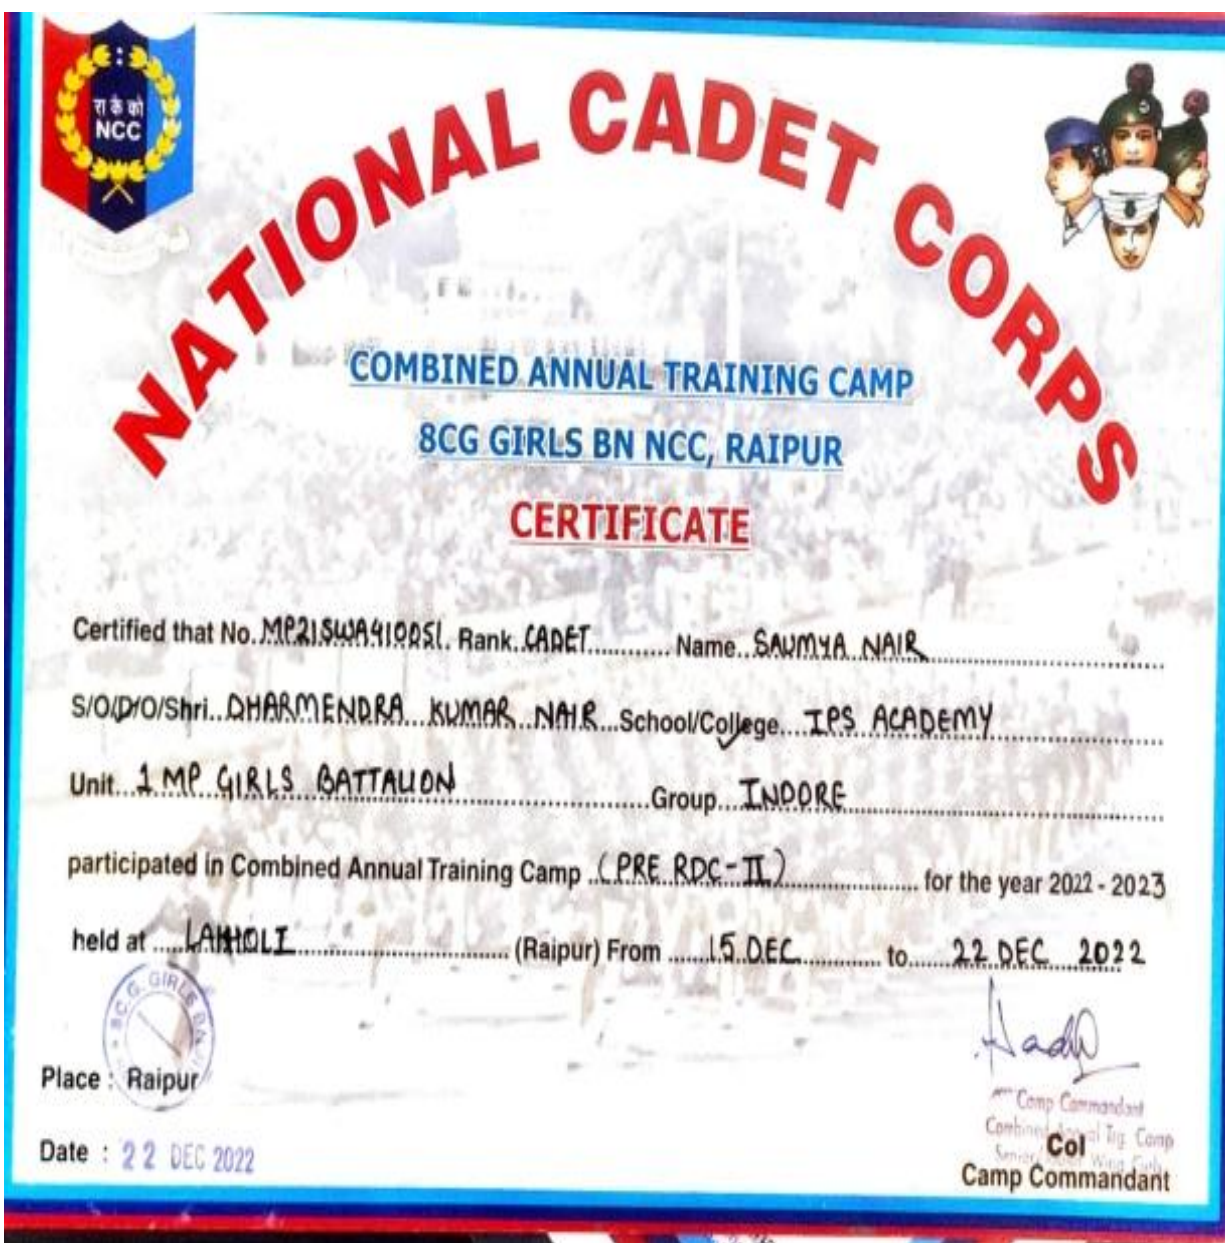 रा के को
NCC
NATIONAL CADET CORPS
COMBINED ANNUAL TRAINING CAMP
8CG GIRLS BN NCC, RAIPUR
CERTIFICATE
Certified that No. MP21SWA410051. Rank. CADET............ Name.. SAUMYA NAIR
S/O/D/O/Shri.. DHARMENDRA KUMAR NAIR ...School/College... IPS ACADEMY
Unit... 1 MP GIRLS BATTALION ....Group... INDORE
participated in Combined Annual Training Camp ..(PRE RDC-II)........ for the year 2022 - 2023
held at ..... LAKHOLI ........ (Raipur) From ...... 15 DEC ........ to...... 22 DEC 2022
8 C.G. GIRLS BN
Place : Raipur
Camp Commandant
Combined Annual Trg. Camp
Date : 22 DEC 2022
Col
Camp Commandant